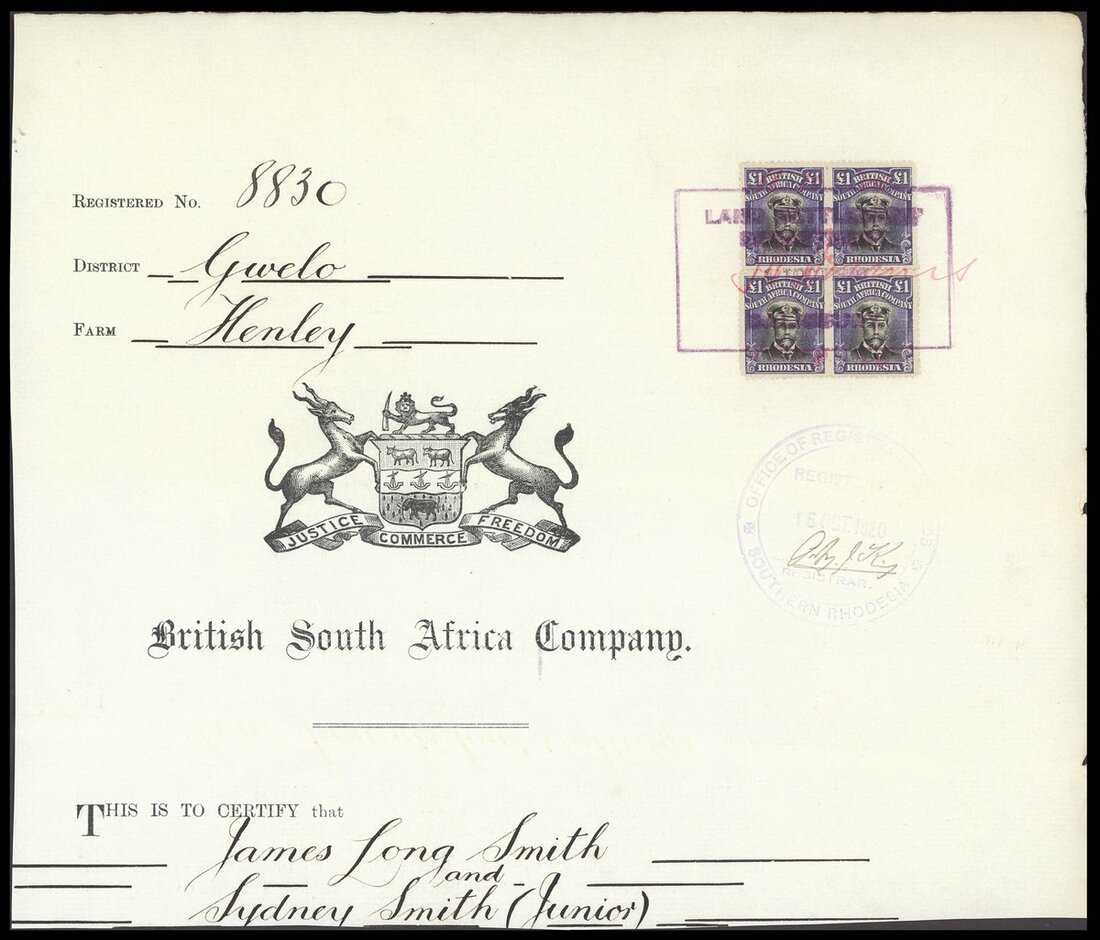 REGISTERED No. 8830
DISTRICT Gwelo
FARM Henley
£1 BRITISH £1
SOUTH AFRICA COMPANY
RHODESIA
£1 BRITISH £1
SOUTH AFRICA COMPANY
RHODESIA
£1 BRITISH £1
SOUTH AFRICA COMPANY
RHODESIA
£1 BRITISH £1
SOUTH AFRICA COMPANY
RHODESIA
LAND
JUSTICE COMMERCE FREEDOM
OFFICE OF REGIS
16 OCT 1920
REGISTRAR.
SOUTHERN RHODESIA
British South Africa Company.
THIS IS TO CERTIFY that
James Long Smith
and
Sydney Smith (Junior)